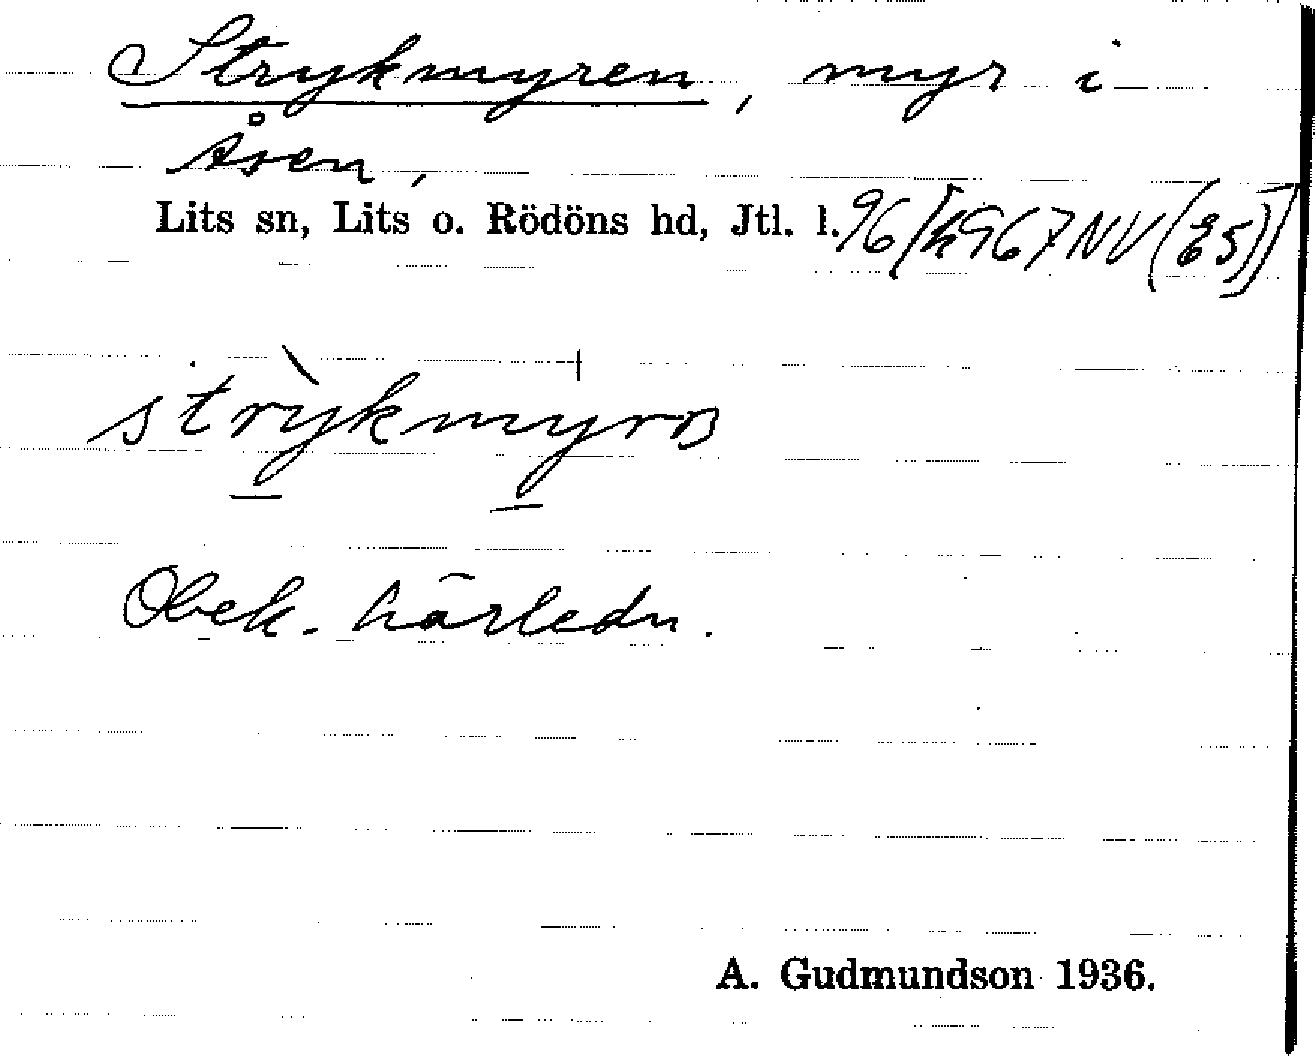 Strykmyren, myr i
Åsen,
Lits sn, Lits o. Rödöns hd, Jtl. l. 96/[k967NV(E5)]
Obek. härledn.
A. Gudmundson 1936.